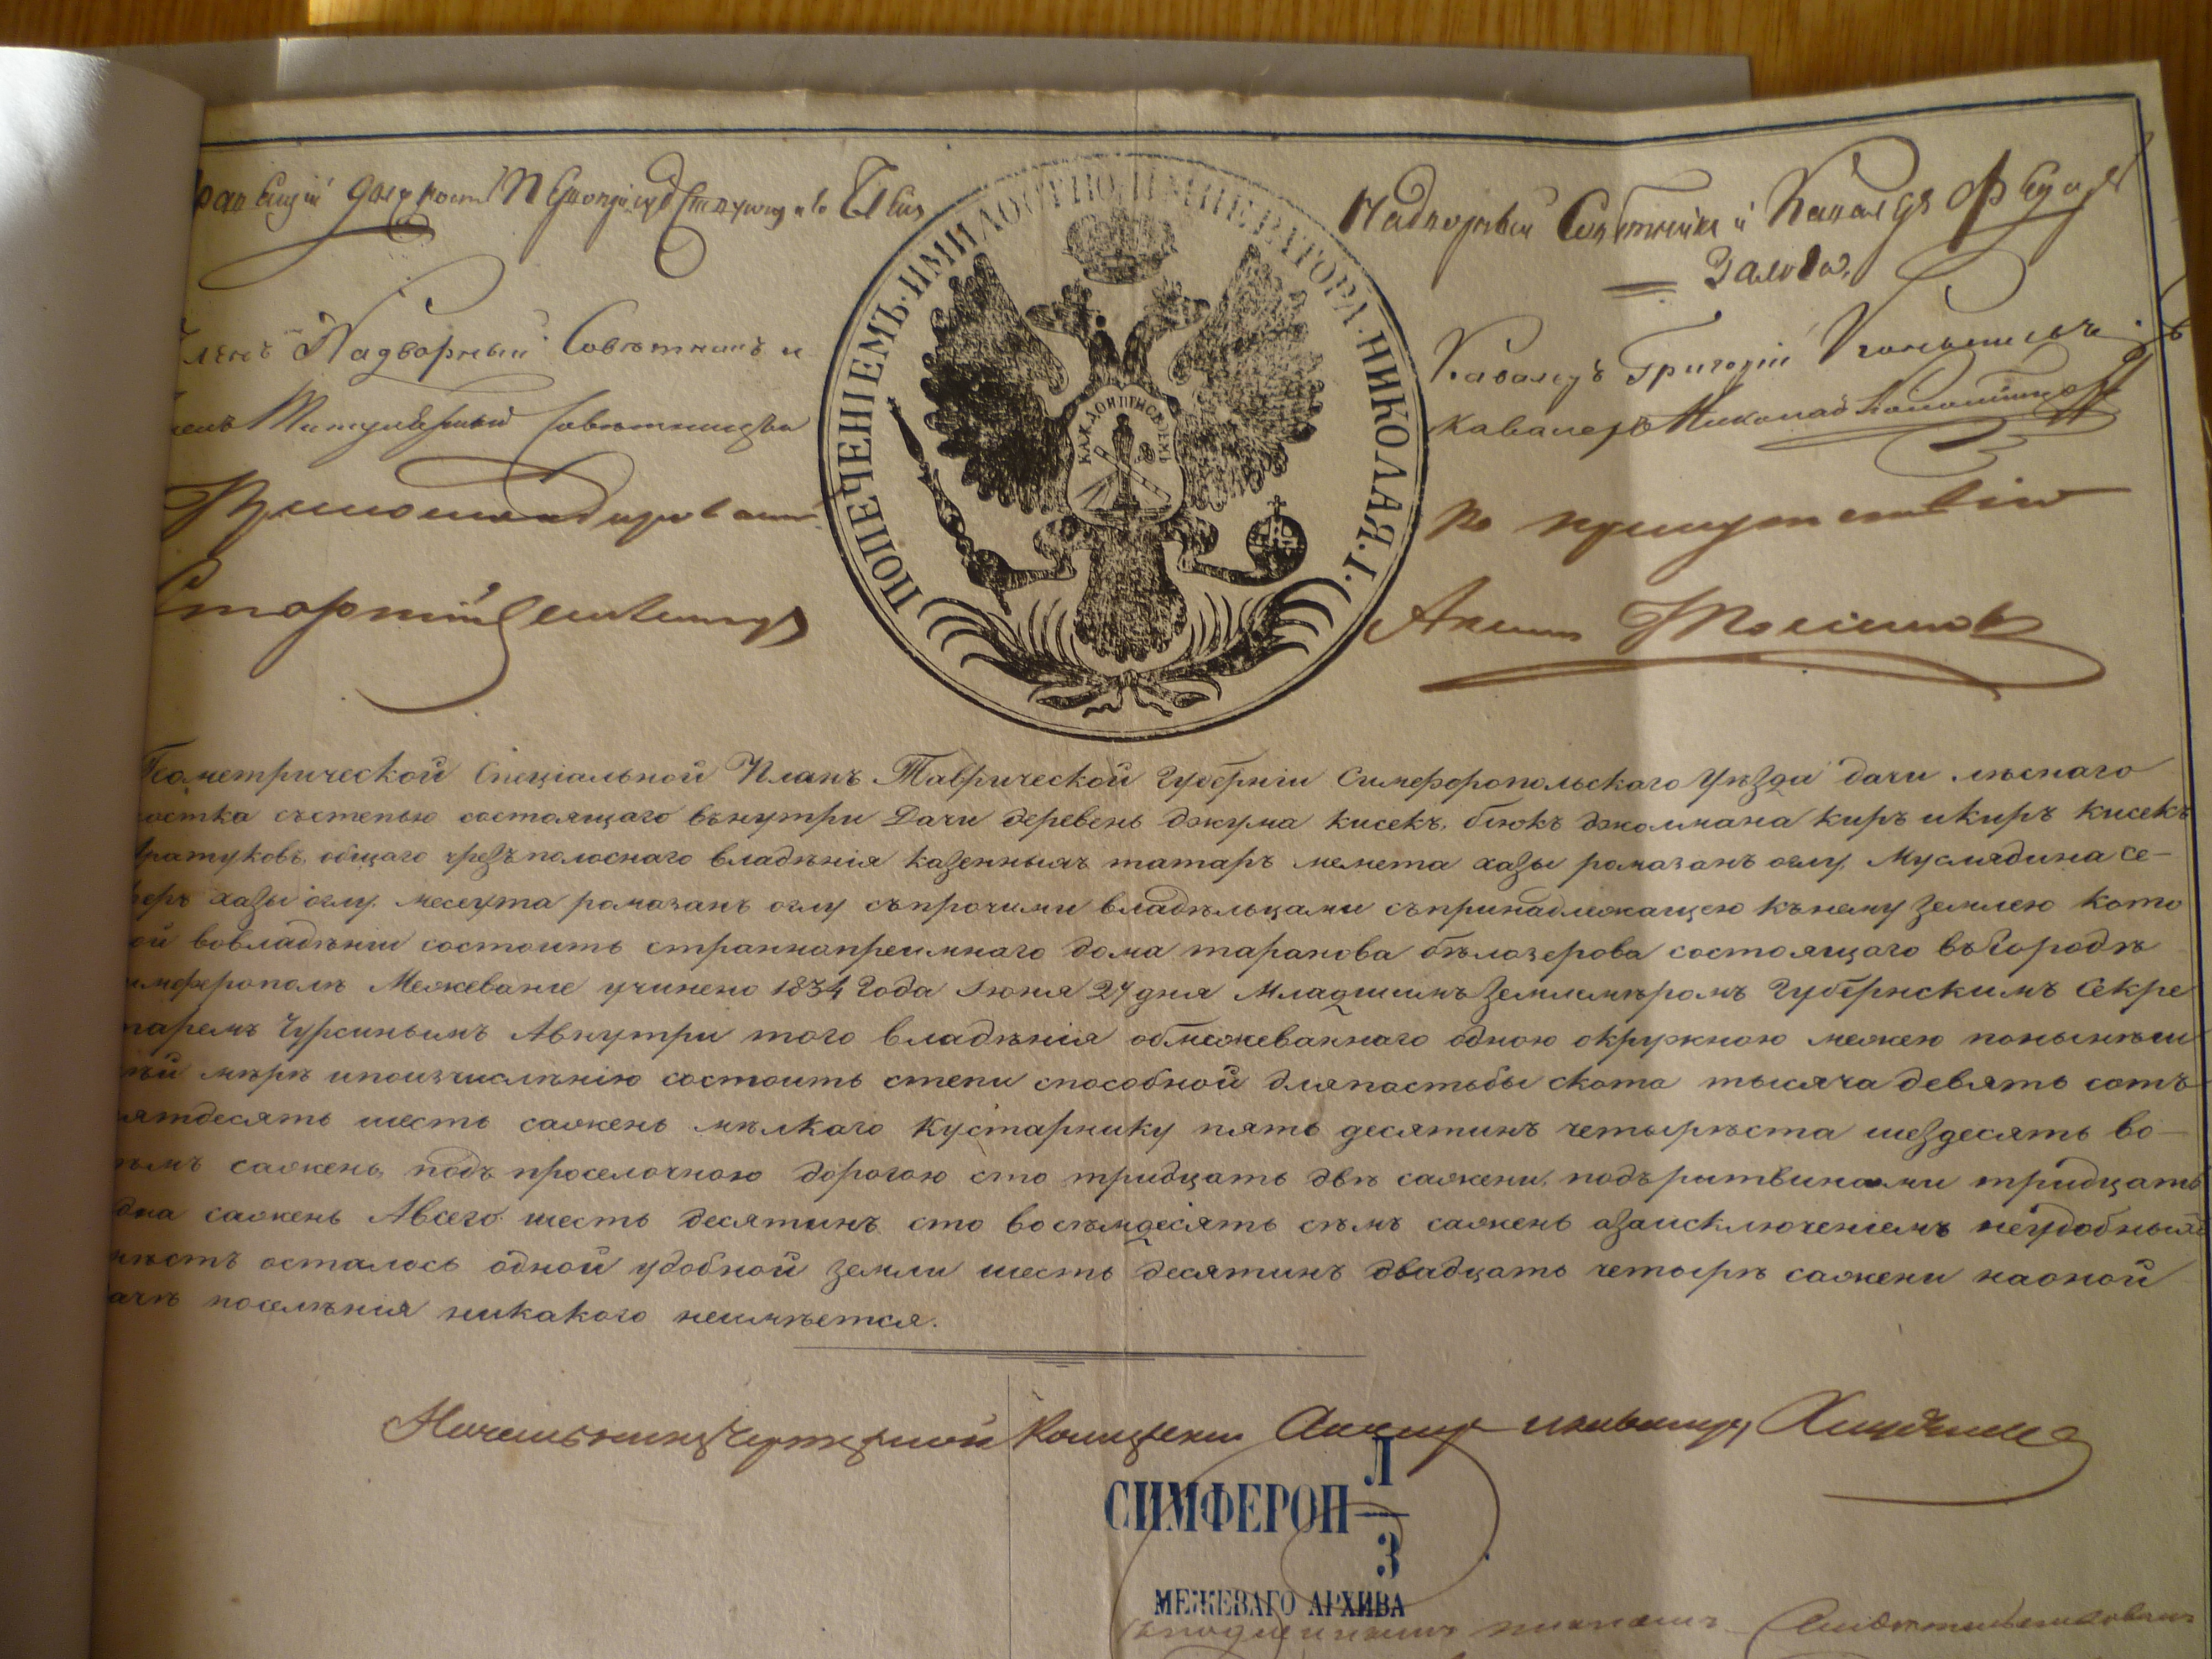 Надворный Совѣтникъ и Кавалеръ
Надворный Совѣтникъ и
Кавалеръ Григорій
Титулярный Совѣтникъ и
кавалеръ Николай
Прикомандированный
къ присутствію
Старшій Землемѣръ
ПОПЕЧЕНІЕМЪ·И МИЛОСТІЮ·ИМПЕРАТОРА·НИКОЛАЯ·I·
КАЖДОМУ СВОЕ
Геометрической Спеціальной Планъ Таврической Губерніи Симферопольскаго Уѣзда дачи лѣснаго
состепью состоящаго вънутри Дачи деревень джума кисекъ, біюкъ джолмана киръ икиръ кисекъ
братуковъ, общаго чрезъполоснаго владѣнія казенныхъ татаръ мемета хазы ромазанъ оглу, Муслядина се-
хазы оглу, месеута ромазанъ оглу съпрочими владѣльцами съпринадлежащею кънему землею кото
вовладѣніи состоитъ страннопреимнаго дома таранова бѣлозерова состоящаго въгородѣ
имферополѣ Межеваніе учинено 1834 Года Іюня 27 дня Младшимъ Землемѣромъ Губернскимъ Секре
таремъ Чурсинымъ Авнутри того владѣнія обмежеваннаго одною окружною межею понынѣш
ней мѣрѣ ипоизчисленію состоитъ степи способной дляпастьбы скота тысяча девять сотъ
ятдесятъ шесть саженъ мѣлкаго кустарнику пять десятинъ четыреста шездесятъ во-
емъ саженъ, подъ проселочною дорогою сто тридцать двѣ сажени, подърытвинами тридцать
дна сажень Авсего шесть десятинъ сто восѣмдесятъ сѣмъ саженъ азаисключеніемъ неудобныхъ
мѣстъ осталось одной удобной земли шесть десятинъ двадцать четыре сажени наоной
ачѣ поселѣнія никакого неимѣется.
Начальникъ Чертежной
СИМФЕРОП Л
3
МЕЖЕВАГО АРХИВА